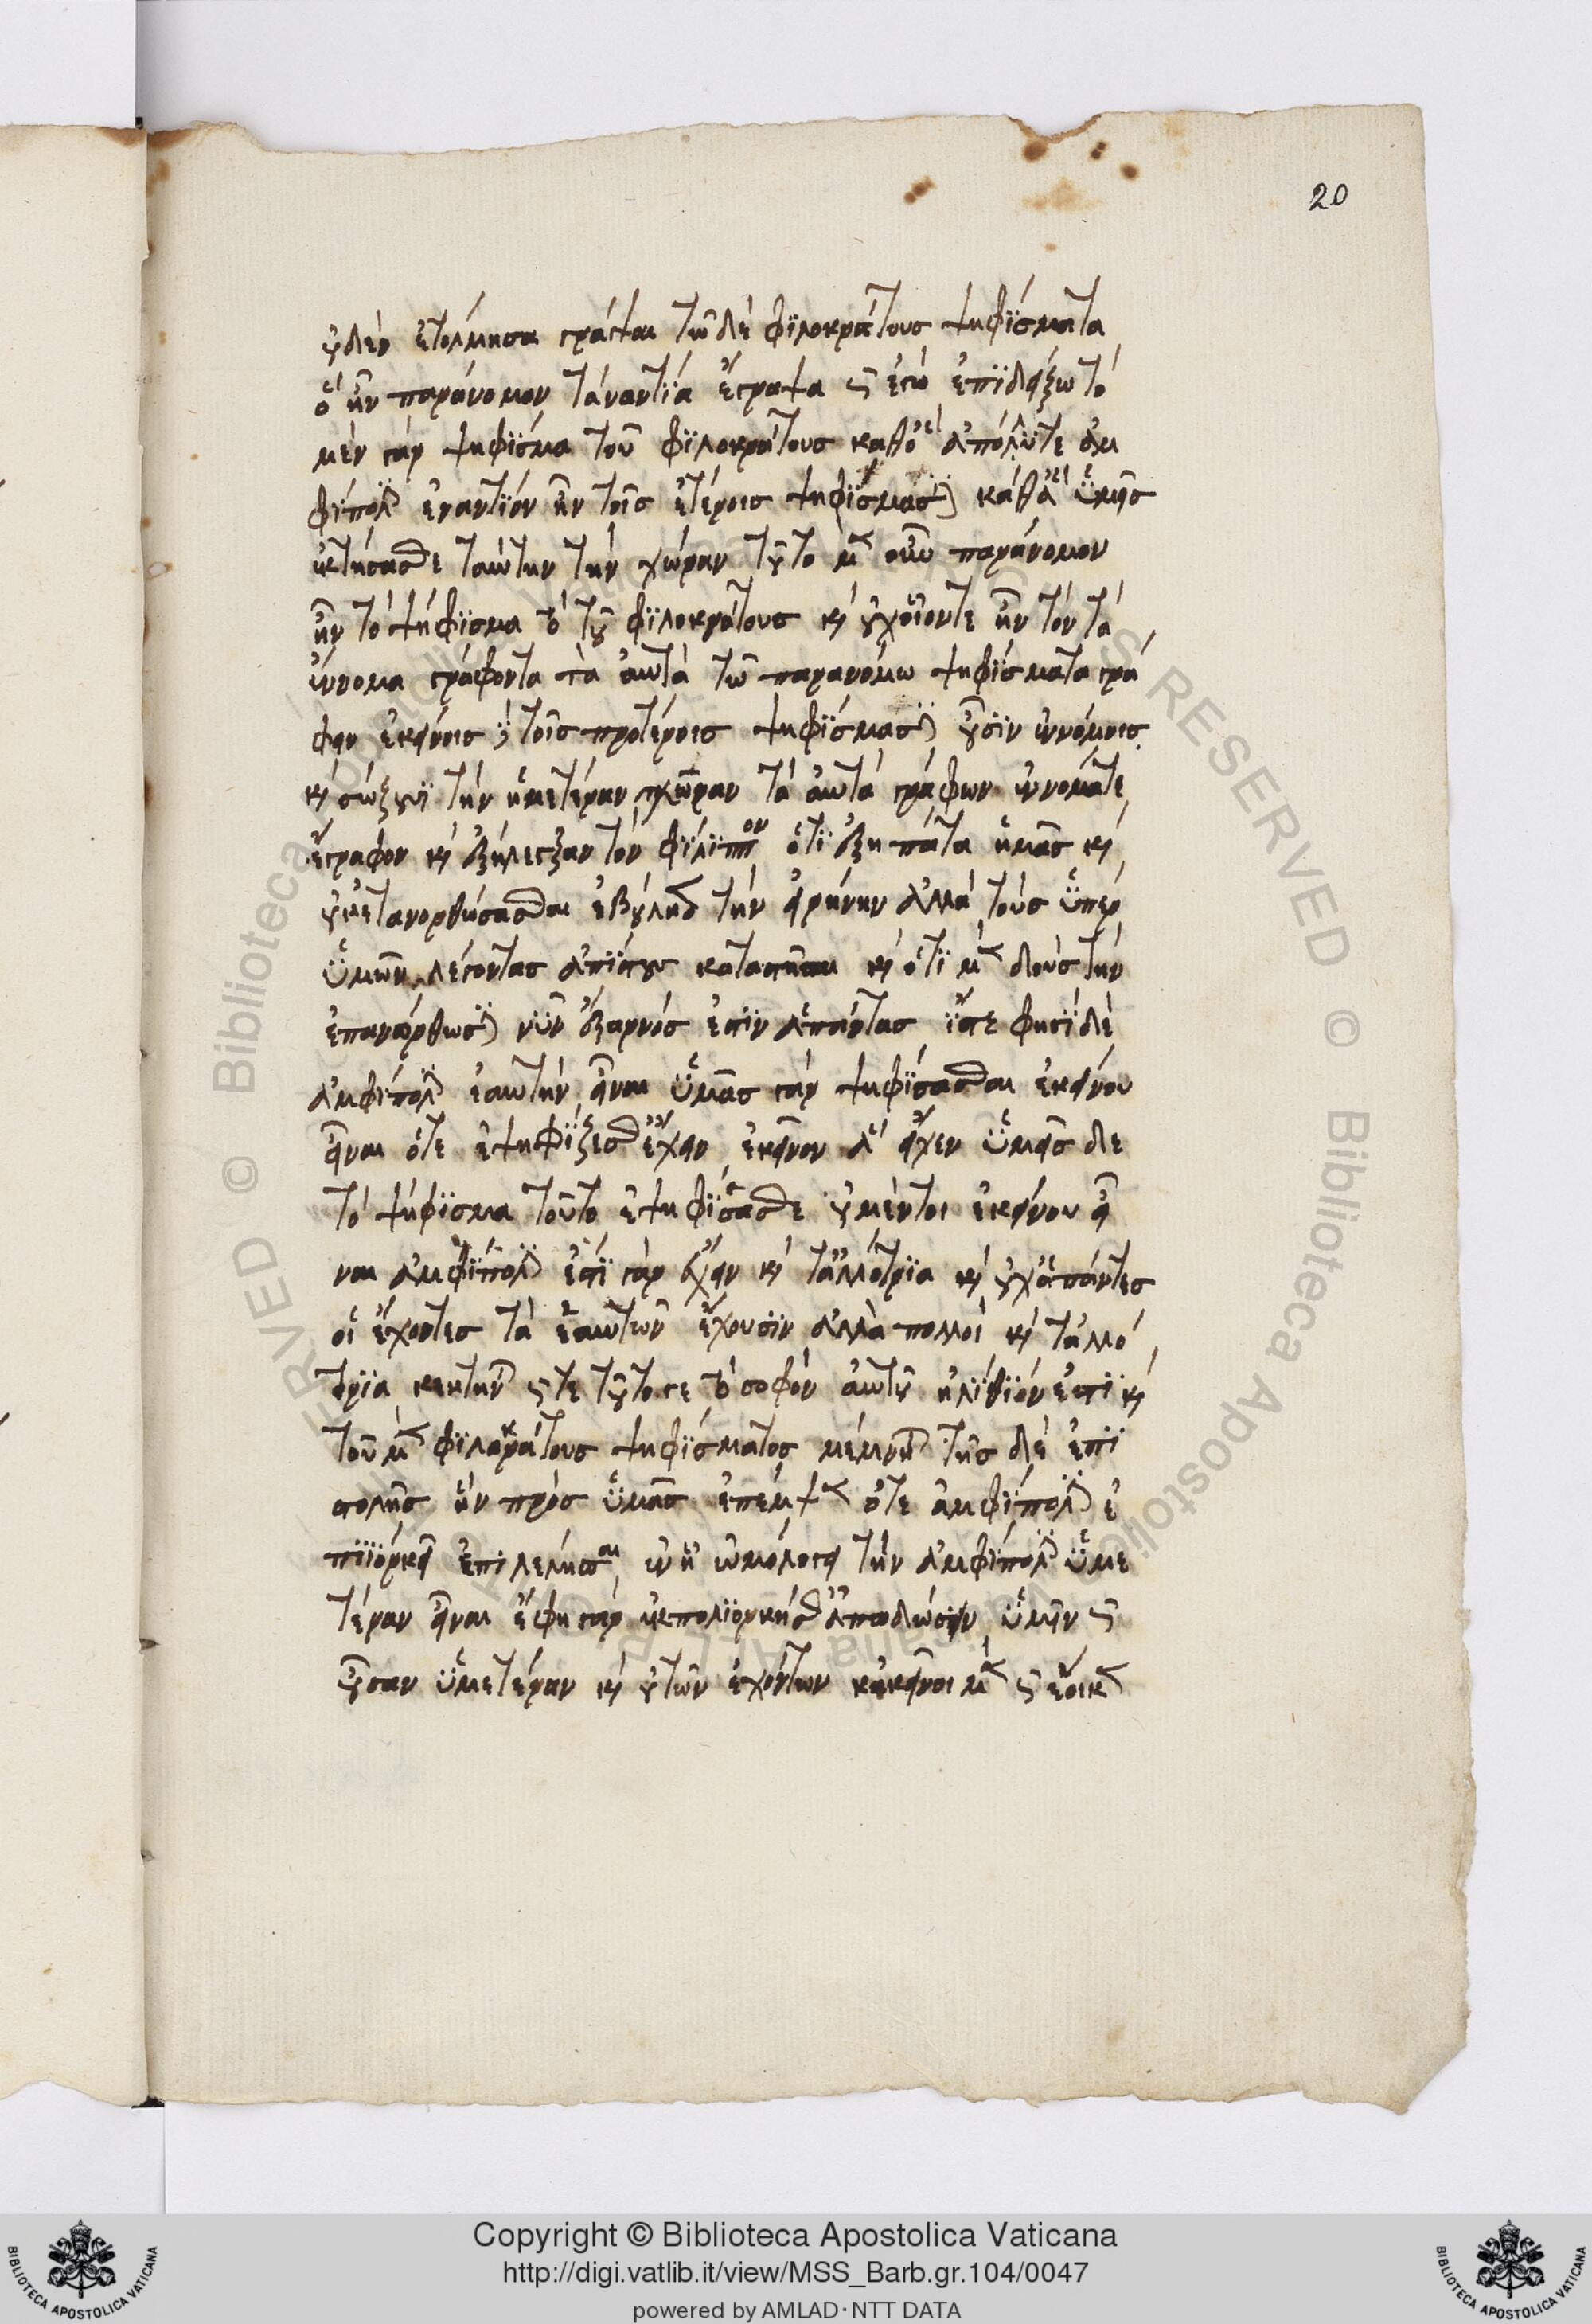 20
οὐδὲν ἐτόλμησα γράψαι τῶ δὲ φιλοκράτους ψηφίσματι
ὅ ἦν παράνομον τἀναντία ἔγραψα ὡς ἐγὼ ἐπιδείξω τὸ
μὲν γὰρ ψήφισμα τοῦ φιλοκράτους καθ' ὃ ἀπόλλυτε ἀμ
φίπολιν ἐναντίον ἦν τοῖς ἑτέροις ψηφίσμασιν καθ' ἃ ὑμεῖς
ἐκτήσασθε ταύτην τὴν χώραν τοῦτο μὲν οὖν παράνομον
ἦν τὸ ψήφισμα τὸ τοῦ φιλοκράτους καὶ οὐχ οἷόν τε ἦν τὸν τὰ
ἔννομα γράφοντα τὰ αὐτὰ τῶ παρανόμω ψηφίσματα γρά
φειν ἐκείνοις δὲ τοῖς προτέροις ψηφίσμασιν οὖσιν ἐννόμοις
καὶ σώζουσι τὴν ἡμετέραν χώραν τὰ αὐτὰ γράφων ἔννομά τε
ἔγραφον καὶ ἐξήλεγξαν τὸν φίλιππον ὅτι ἐξηπάτα ἡμᾶς καὶ
οὐκ ἐπανορθώσασθαι ἐβούλετο τὴν εἰρήνην ἀλλὰ τοὺς ὑπὲρ
ὑμῶν λέγοντας ἀπίστους καταστῆσαι καὶ ὅτι μὲν δοὺς τὴν
ἐπανόρθωσιν νῦν ἔξαρνός ἐστιν ἅπαντας ἴστε φησὶ δὲ
ἀμφίπολιν ἑαυτὴν εἶναι ὑμᾶς γὰρ ψηφίσασθαι ἐκείνου
εἶναι ὅτε ἐψηφίζεσθε ἔχειν ἐκεῖνον ἃ εἶχεν ὑμεῖς δε
τὸ ψήφισμα τοῦτο ἐψηφίσασθε οὐ μέντοι ἐκείνου εἶ
ναι ἀμφίπολιν ἔστι γὰρ ἔχειν καὶ τἀλλότρια καὶ οὐχ ἅπαντες
οἱ ἔχοντες τὰ ἑαυτῶν ἔχουσιν ἀλλὰ πολλοὶ καὶ τἀλλό
τρια κέκτηνται ὥστε τοῦτό γε τὸ σοφὸν αὐτοῦ ἠλίθιόν ἐστι καὶ
τοῦ μὲν φιλοκράτους ψηφίσματος μέμνηται τῆς δὲ ἐπι
στολῆς ἣν πρὸς ὑμᾶς ἔπεμψεν ὅτε ἀμφίπολιν ἐ
πολιόρκει ἐπιλέλησται ἐν ἧ ὡμολόγει τὴν ἀμφίπολιν ὑμε
τέραν εἶναι ἔφη γὰρ ἐκπολιορκήσας ἀποδώσειν ὑμῖν ὡς
οὖσαν ὑμετέραν καὶ οὐ τῶν ἐχόντων κἀκεῖνοι μὲν ὡς ἔοικεν
Copyright © Biblioteca Apostolica Vaticana
http://digi.vatlib.it/view/MSS_Barb.gr.104/0047
powered by AMLAD · NTT DATA